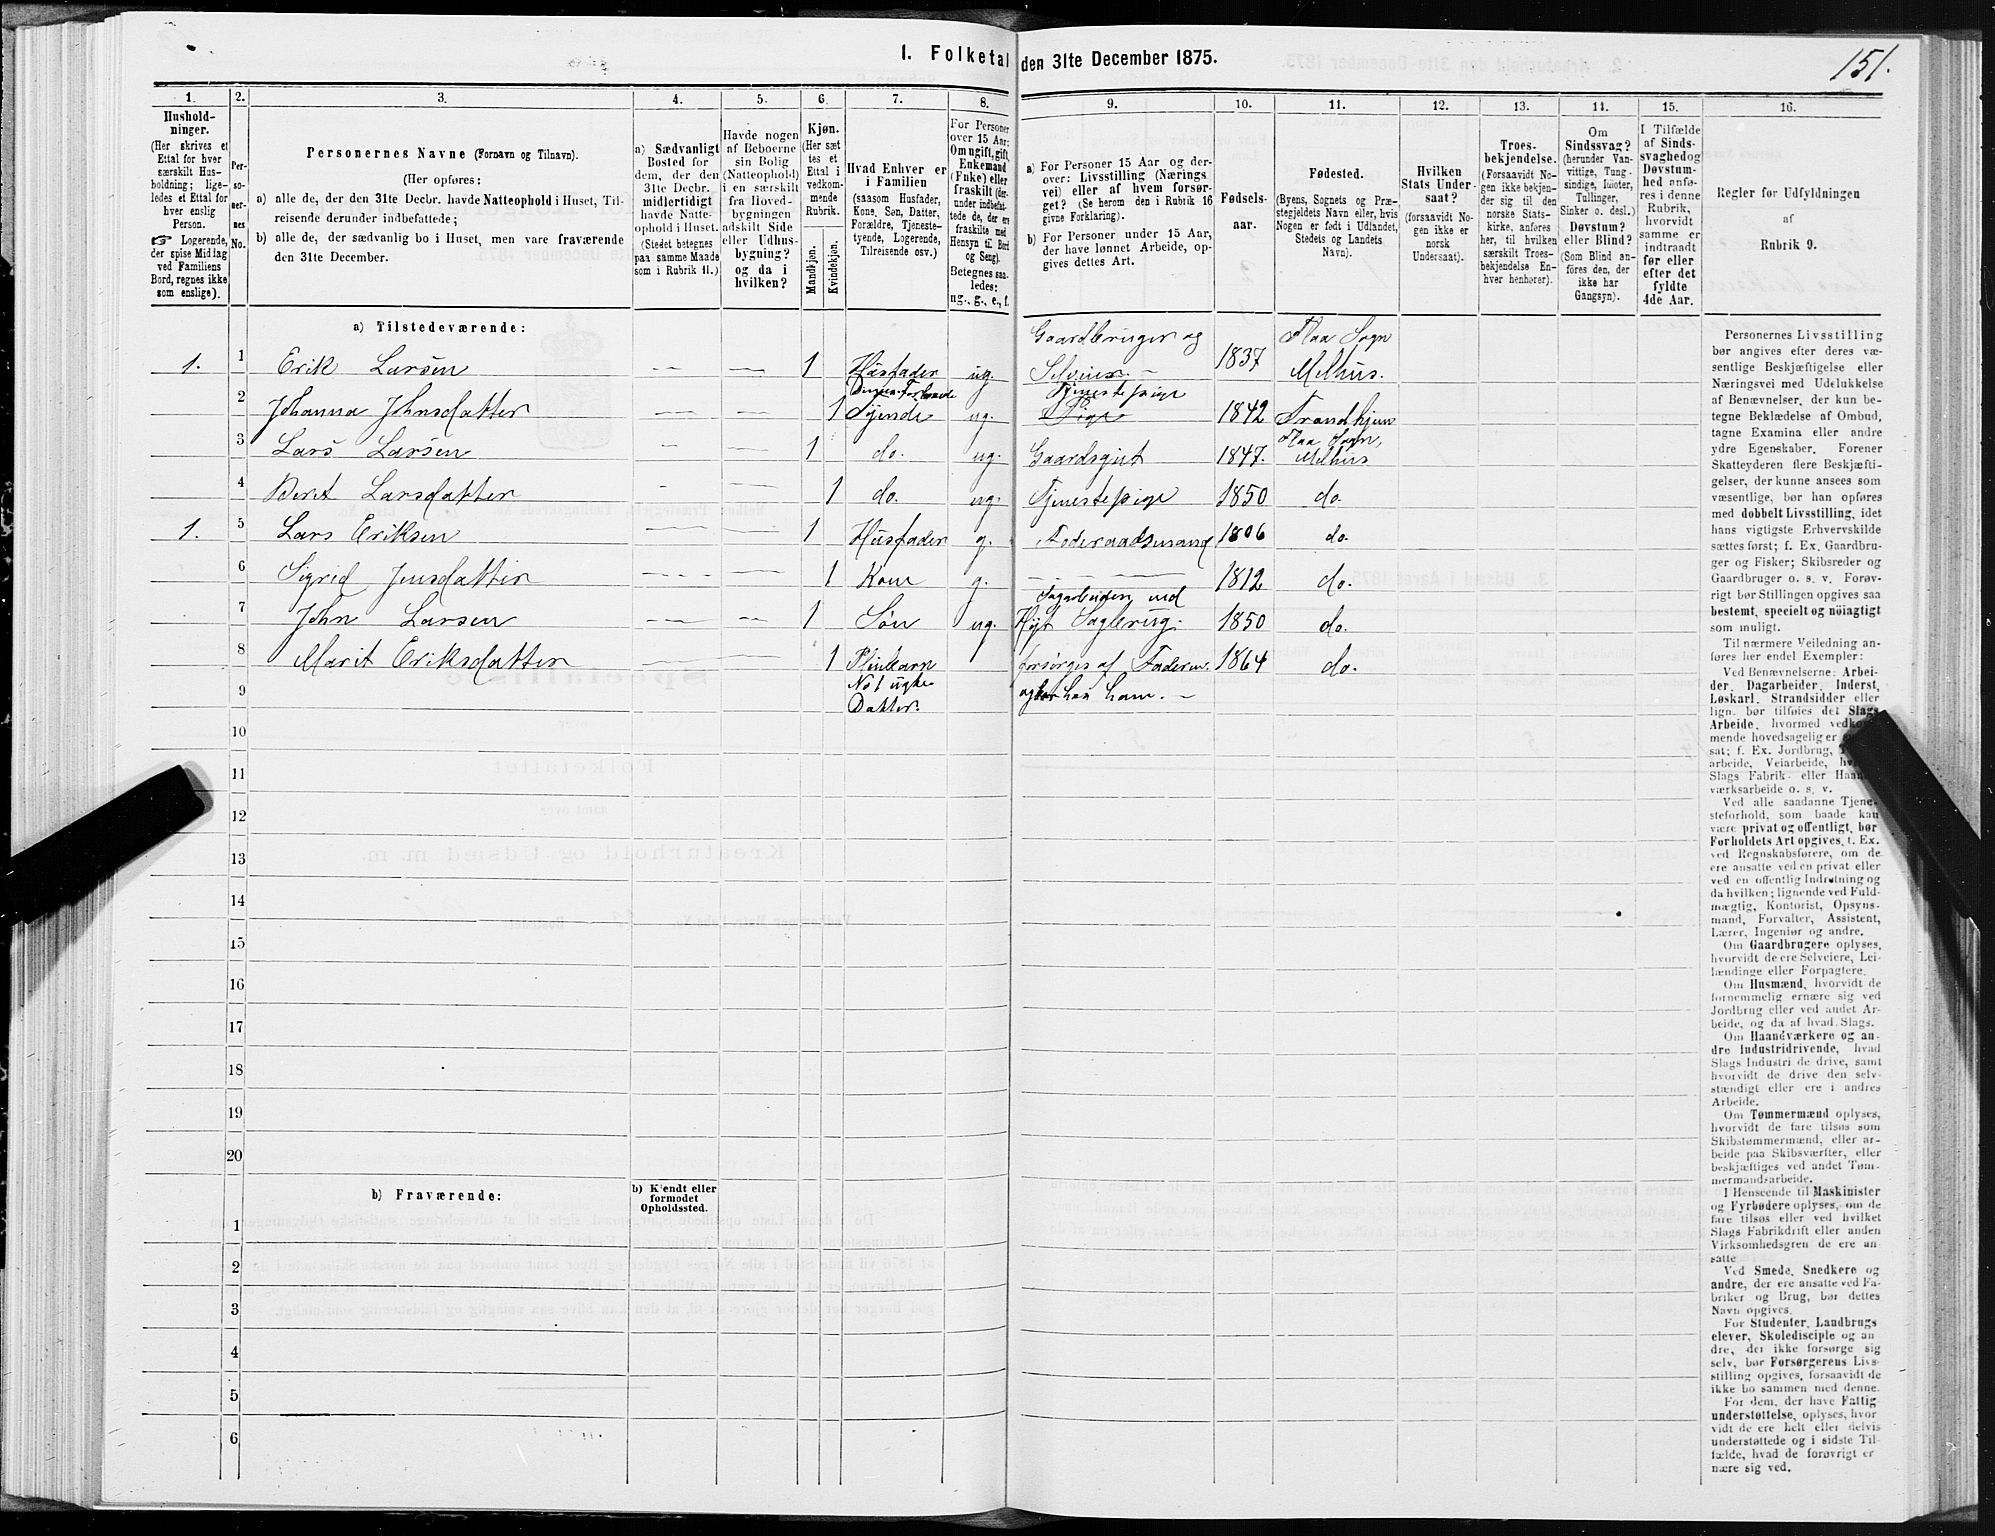 151.
I. Folketal den 31te December 1875.
1. 2. 3. 4. 5. 6. 7. 8. 9. 10. 11. 12. 13. 14. 15. 16.
Hushold-
ninger.
(Her skrives et
Ettal for hver
særskilt Hus-
holdning; lige-
ledes et Ettal for
hver enslig
Person.
☞ Logerende,
der spise Middag
ved Familiens
Bord, regnes ikke
som enslige).
Per-
so-
ner-
nes
No.
Personernes Navne (Fornavn og Tilnavn).
(Her opføres:
a) alle de, der den 31te Decbr. havde Natteophold i Huset, Til-
reisende derunder indbefattede;
b) alle de, der sædvanlig bo i Huset, men vare fraværende
den 31te December.
a) Sædvanligt
Bosted for
dem, der den
31te Decbr.
midlertidigt
havde Natte-
ophold i Huset.
(Stedet betegnes
paa samme Maade
som i Rubrik 11.)
Havde nogen
af Beboerne
sin Bolig
(Natteophold)
i en særskilt
fra Hoved-
bygningen
adskilt Side
eller Udhus-
bygning?
og da i
hvilken?
Kjøn.
(Her sæt
tes et
Ettal i
vedkom-
mende
Rubrik.
Mandkjøn.
Kvindekjøn.
Hvad Enhver er
i Familien
(saasom Husfader,
Kone, Søn, Datter,
Forældre, Tjeneste-
tyende, Logerende,
Tilreisende osv.)
For Personer
over 15 Aar:
Om ugift, gift,
Enkemand
(Enke) eller
fraskilt (der-
under indbefat-
tede de, der ere
fraskilte med
Hensyn til Bord
og Seng).
Betegnes saa-
ledes:
ug., g., e., f.
a) For Personer 15 Aar og der-
over: Livsstilling (Nærings
vei) eller af hvem forsør-
get? (Se herom den i Rubrik 16
givne Forklaring).
b) For Personer under 15 Aar,
der have lønnet Arbeide, op-
gives dettes Art.
Fødsels-
aar.
Fødested.
(Byens, Sognets og Præ-
stegjeldets Navn eller, hvis
Nogen er født i Udlandet,
Stedets og Landets
Navn).
Hvilken
Stats Under-
saat?
(forsaavidt No-
gen ikke er
norsk
Undersaat).
Troes-
bekjendelse.
(Forsaavidt No-
gen ikke bekjen-
der sig til den
norske Stats-
kirke, anføres
her, til hvilken
særskilt Troes-
bekjendelse En-
hver henhører).
Om
Sindssvag?
(herunder Van-
vittige, Tung-
sindige, Idioter,
Tullinger,
Sinker o. desl.)
Døvstum?
eller Blind?
(Som Blind an-
føres den, der
ikke har
Gangsyn).
I Tilfælde
af Sinds-
svaghed og
Døvstum-
hed anfø-
res i denne
Rubrik,
hvorvidt
samme er
indtraadt
før eller
efter det
fyldte
4de Aar.
Regler for Udfyldningen
af
Rubrik 9.
a) Tilstedeværende:
1. 1 Erik Larsen — — 1 Husfader ug. Gaardbruger og Selveier. 1837 Flaa Sogn Melhus.
2 Johanna Johnsdatter — — 1 Tyende ug. Tjenestepige 1842 Trondhjem
3 Lars Larsen — — 1 do. ug. Gaardsgut 1847. Flaa Sogn, Melhus
4 Beret Larsdatter — — 1 do. ug. Tjenestepige 1850 do.
1. 5 Lars Eriksen — — 1 Husfader g. Föderaadsmand 1806 do.
6 Sigrid Jensdatter — — 1 Kone g. — 1812 do.
7 John Larsen — — 1 Søn ug. Sagarbeider ved Sagbrug. 1850 do.
8 Marit Eriksdatter — 1 Pleiebarn No 1 ugte Datter. forsørges af Faderen. 1864 do.
9
10
11
12
13
14
15
16
17
18
19
20
b) Fraværende:
b) Kjendt eller
formodet
Opholdssted.
1
2
3
4
5
6
Personernes Livsstilling
bør angives efter deres væ-
sentlige Beskjæftigelse eller
Næringsvei med Udelukkelse
af Benævnelser, der kun be-
tegne Beklædelse af Ombud,
tagne Examina eller andre
ydre Egenskaber. Forener
Skatteyderen flere Beskjæfti-
gelser, der kunne ansees som
væsentlige, bør han opføres
med dobbelt Livsstilling, idet
hans vigtigste Erhvervskilde
sættes først; f. Ex. Gaardbru-
ger og Fisker; Skibsreder og
Gaardbruger o. s. v. Forøv-
rigt bør Stillingen opgives saa
bestemt, specielt og nöiagtigt
som muligt.
Til nærmere Veiledning an-
føres her endel Exempler:
Ved Benævnelserne: Arbei-
der, Dagarbeider, Inderst,
Løskarl, Strandsidder eller
lign. bør tilføies det Slags
Arbeide, hvormed vedkom-
mende hovedsagelig er
sat; f. Ex. Jordbrug,
arbeide, Veiarbeide,
Slags Fabrik- eller Haand-
værksarbeide o. s. v.
Ved alle saadanne Tjene-
steforhold, som baade kan
være privat og offentligt, bør
Forholdets Art opgives, f. Ex.
ved Regnskabsførere, om de
ere ansatte ved en privat eller
ved en offentlig Indretning og
da hvilken; lignende ved Fuld-
mægtig, Kontorist, Opsyns-
mand, Forvalter, Assistent,
Lærer, Ingeniør og andre.
Om Gaardbrugere oplyses,
hvorvidt de ere Selveiere, Lei-
lændinge eller Forpagtere.
Om Husmænd, hvorvidt de
fornemmelig ernære sig ved
Jordbrug eller ved andet Ar-
beide, og da af hvad Slags.
Om Haandværkere og an-
dre Industridrivende, hvad
Slags Industri de drive, samt
hvorvidt de drive den selv-
stændigt eller ere i andres
Arbeide.
Om Tømmermænd oplyses,
hvorvidt de fare tilsøs som
Skibstømmermænd, eller ar-
beide paa Skibsværfter, eller
beskjæftiges ved andet Tøm-
mermandsarbeide.
I Henseende til Maskinister
og Fyrbødere oplyses, om de
fare tilsøs eller ved hvilket
Slags Fabrikdrift eller anden
Virksomhedsgren de ere an-
satte
Ved Smede, Snedkere og
andre, der ere ansatte ved Fa-
briker og Brug, bør dettes
Navn opgives.
For Studenter, Landbrugs
elever, Skoledisciple og an
dre, der ikke forsørge sig
selv, bør Forsørgerens Livs-
stilling opgives, forsaavidt de
ikke bo sammen med denne.
For dem, der have Fattig-
understøttelse, oplyses, hvor
vidt de ere helt eller delvis
understøttede og i sidste Til-
fælde, hvad de forøvrigt er
nære sig ved.